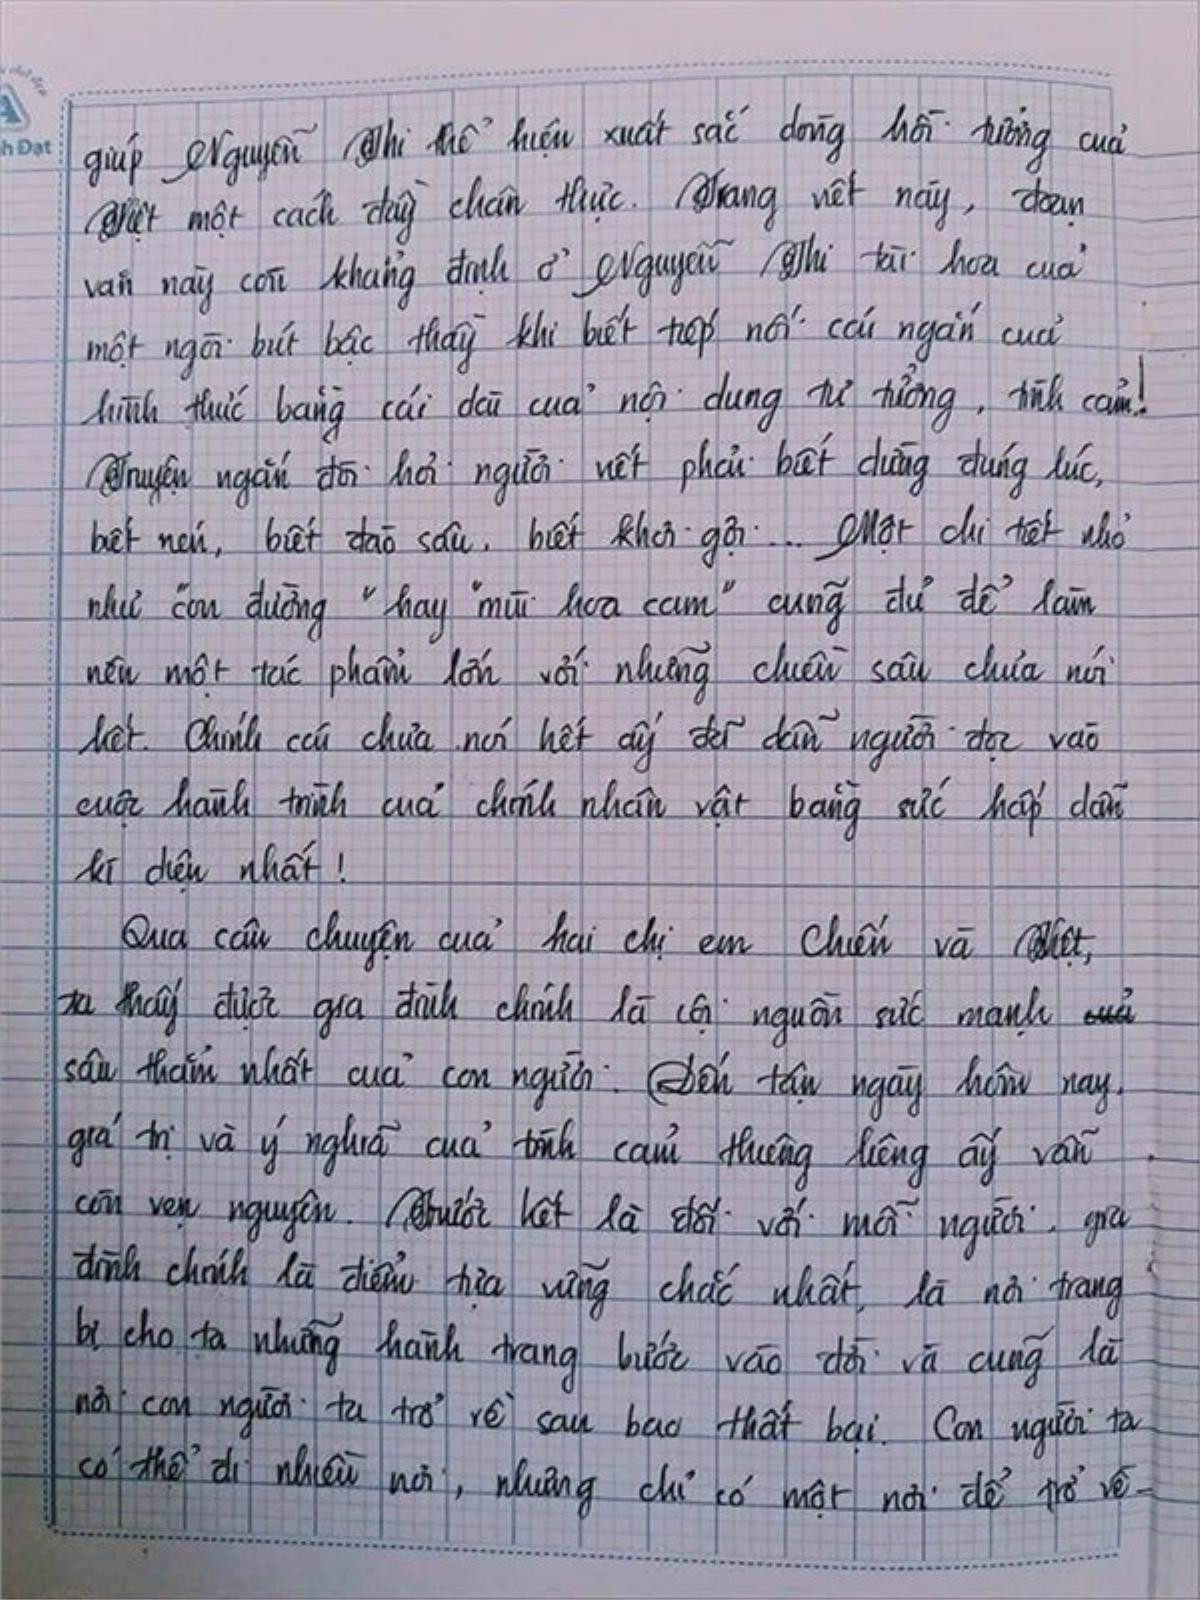 giúp Nguyễn Thi thể hiện xuất sắc dòng hồi tưởng của
Việt một cách đầy chân thực. Trang viết này, đoạn
văn này còn khẳng định ở Nguyễn Thi tài hoa của
một ngòi bút bậc thầy khi biết tiếp nối cái ngắn của
hình thức bằng cái dài của nội dung tư tưởng, tình cảm!
Truyện ngắn đòi hỏi người viết phải biết dừng đúng lúc,
biết nén, biết đào sâu, biết khơi gợi ... Một chi tiết nhỏ
như "con đường" hay "mùi hoa cam" cũng đủ để làm
nên một tác phẩm lớn với những chiều sâu chưa nói
hết. Chính cái chưa nói hết ấy để dẫn người đọc vào
cuộc hành trình của chính nhân vật bằng sức hấp dẫn
kì diệu nhất!
Qua câu chuyện của hai chị em Chiến và Việt,
ta thấy được gia đình chính là cội nguồn sức mạnh
sâu thẳm nhất của con người. Đến tận ngày hôm nay,
giá trị và ý nghĩa của tình cảm thiêng liêng ấy vẫn
còn vẹn nguyên. Trước hết là đối với mỗi người, gia
đình chính là điểm tựa vững chắc nhất, là nơi trang
bị cho ta những hành trang bước vào đời và cũng là
nơi con người ta trở về sau bao thất bại. Con người ta
có thể đi nhiều nơi, nhưng chỉ có một nơi để trở về-